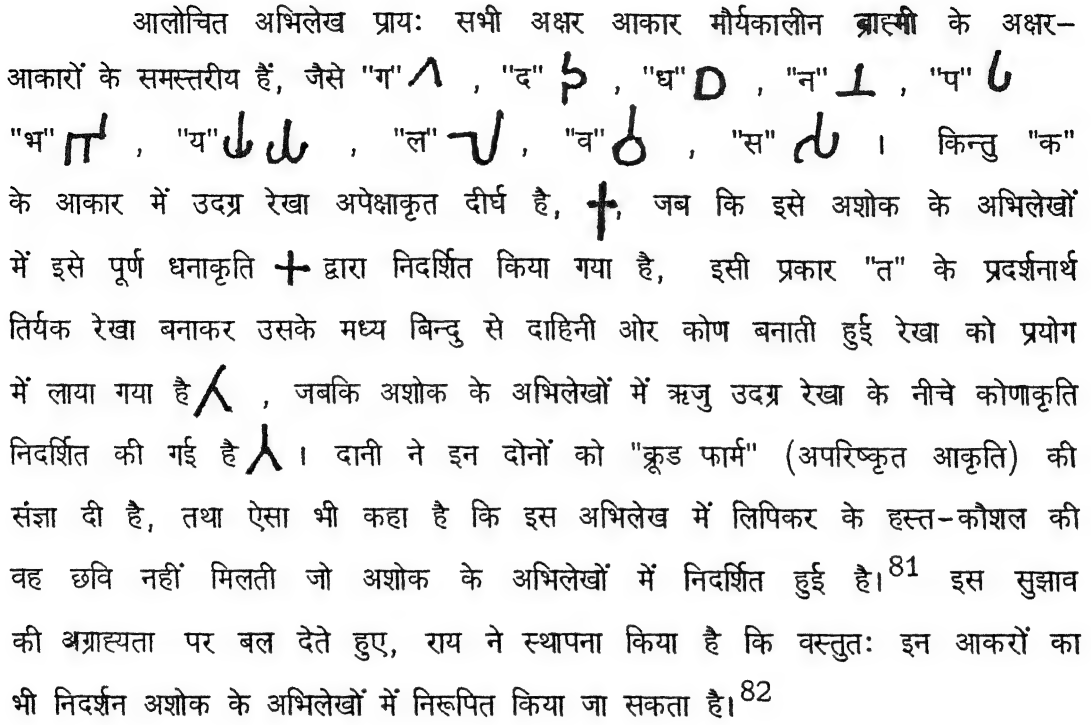 आलोचित अभिलेख प्रायः सभी अक्षर आकार मौर्यकालीन ब्राह्मी के अक्षर-
आकारों के समस्तरीय हैं, जैसे "ग" 𑀕 , "द" 𑀤 , "ध" 𑀥 , "न" 𑀦 , "प" 𑀧
"भ" 𑀪 , "य" 𑀬 𑀬 , "ल" 𑀮 , "व" 𑀯 , "स" 𑀲 । किन्तु "क"
के आकार में उदग्र रेखा अपेक्षाकृत दीर्घ है, 𑀓, जब कि इसे अशोक के अभिलेखों
में इसे पूर्ण धनाकृति 𑀓 द्वारा निदर्शित किया गया है, इसी प्रकार "त" के प्रदर्शनार्थ
तिर्यक रेखा बनाकर उसके मध्य बिन्दु से दाहिनी ओर कोण बनाती हुई रेखा को प्रयोग
में लाया गया है 𑀢 , जबकि अशोक के अभिलेखों में ऋजु उदग्र रेखा के नीचे कोणाकृति
निदर्शित की गई है 𑀢 । दानी ने इन दोनों को "क्रूड फार्म" (अपरिष्कृत आकृति) की
संज्ञा दी है, तथा ऐसा भी कहा है कि इस अभिलेख में लिपिकर के हस्त-कौशल की
वह छवि नहीं मिलती जो अशोक के अभिलेखों में निदर्शित हुई है।81 इस सुझाव
की अग्राह्यता पर बल देते हुए, राय ने स्थापना किया है कि वस्तुतः इन आकरों का
भी निदर्शन अशोक के अभिलेखों में निरूपित किया जा सकता है।82